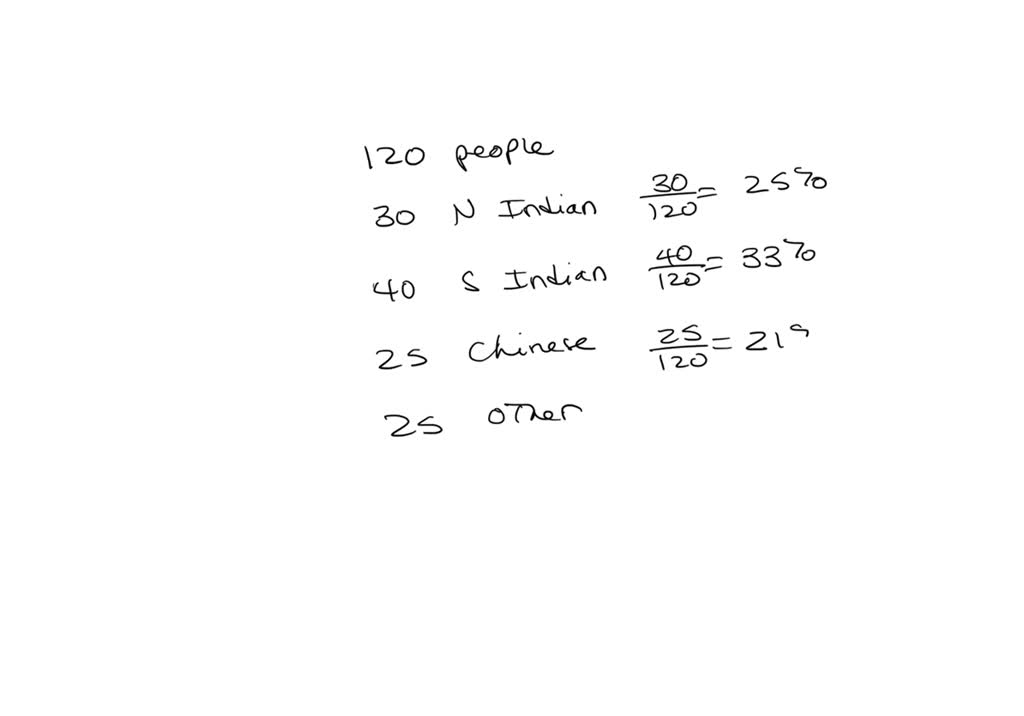 120 people
30 N Indian 30/120 = 25%
40 S Indian 40/120 = 33%
25 Chinese 25/120 = 21
25 other